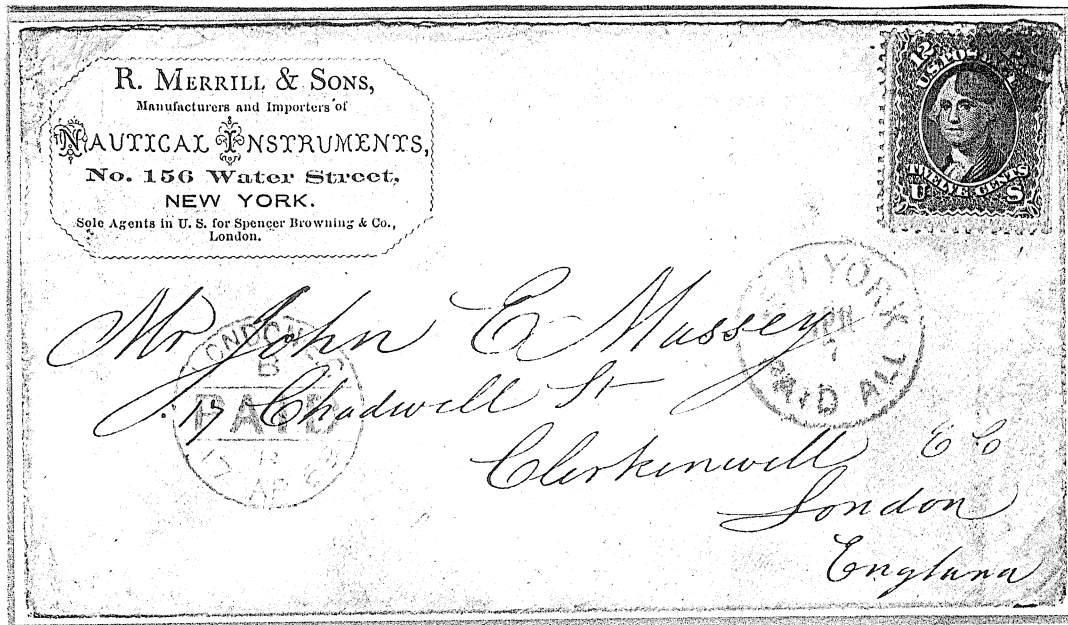 R. MERRILL & SONS,
Manufacturers and Importers of
NAUTICAL INSTRUMENTS,
No. 156 Water Street,
NEW YORK.
Sole Agents in U. S. for Spencer Browning & Co.,
London.
12
U.S. POSTAGE
TWELVE CENTS
U S
NEW YORK
APR
7
PAID ALL
Mr John E Massey
17 Chadwell St
Clerkenwell E C
London
England
LONDON
PAID
17 AP